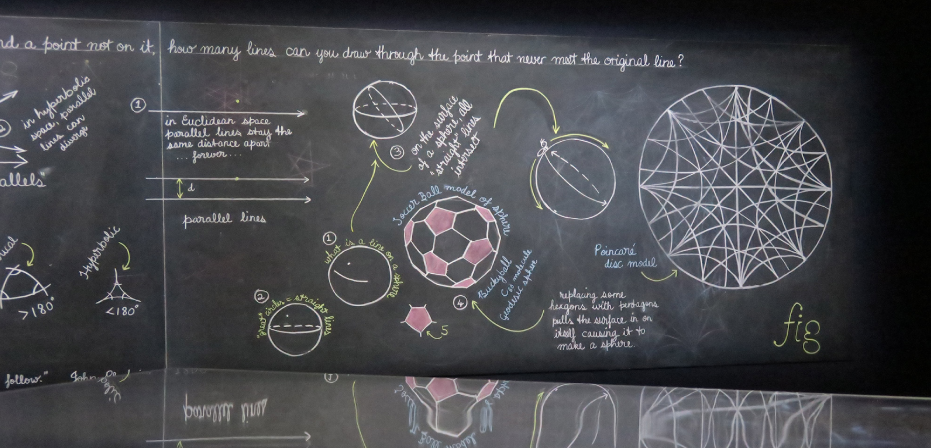 a point not on it, how many lines can you draw through the point that never meet the original line?
in hyperbolic
space parallel
lines can
diverge
allels"
1
in Euclidean space
parallel lines stay the
same distance apart
... forever ...
d
parallel lines
Hyperbolic
>180°
<180°
follow."
3
on the surface
of a sphere all
"straight" lines
intersect
1
what is a line on a sphere
2
circles = straight lines
Soccer Ball model of sphere
Buckyball
molecule
Geodesic sphere
4
5
replacing some
hexagons with pentagons
pulls the surface in on
itself causing it to
make a sphere.
Poincaré
disc model
fig